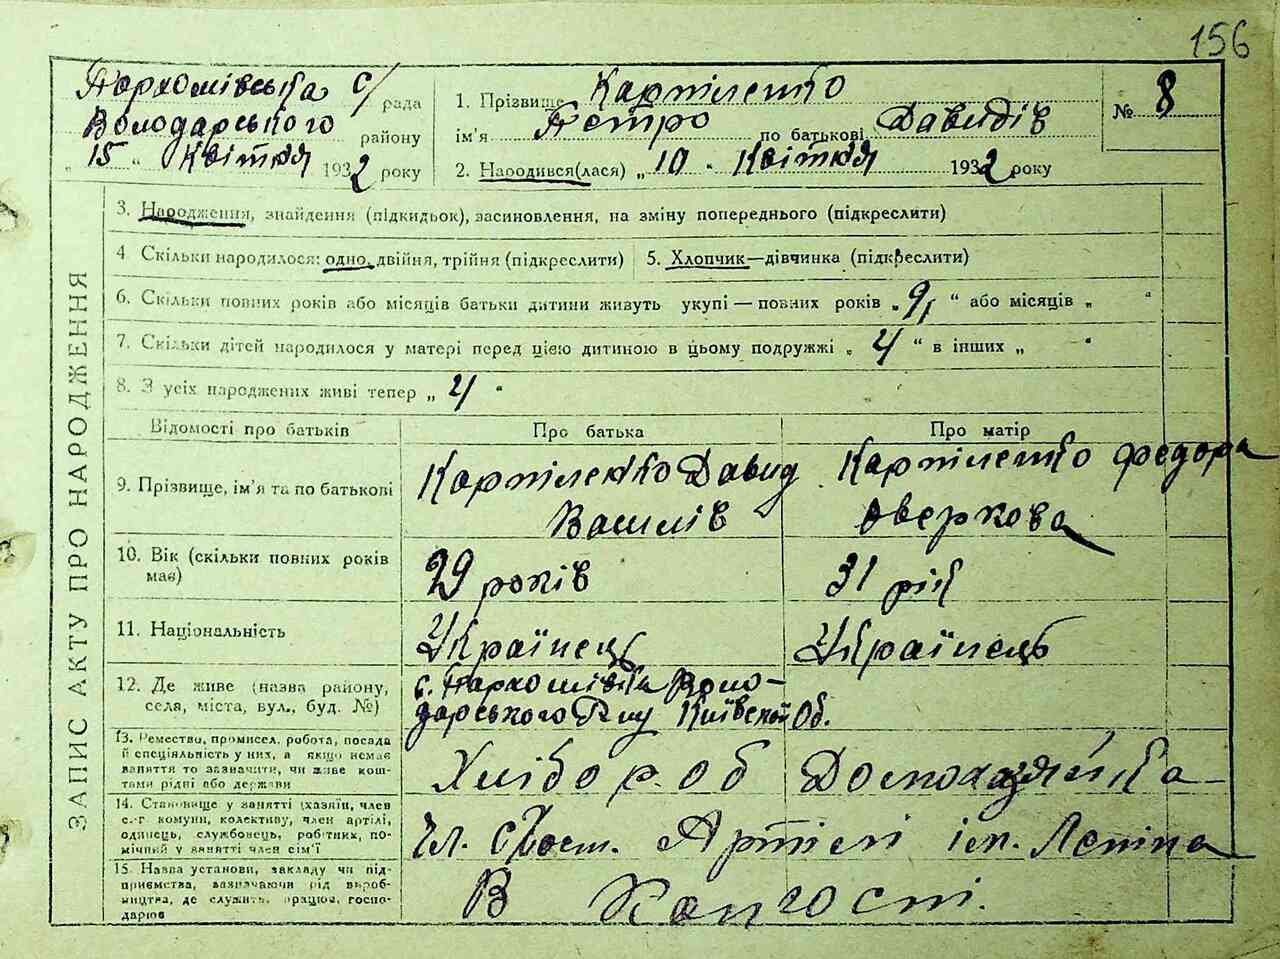 156
Пархомівська с/рада
Володарського району
„15“ Квітня 1932 року
1. Прізвище Карпіленко
ім'я Петро по батькові Давидів
№ 8
2. Народився(лася) „10“ Квітня 1932 року
ЗАПИС АКТУ ПРО НАРОДЖЕННЯ
3. Народження, знайдення (підкидьок), засиновлення, на зміну попереднього (підкреслити)
4 Скільки народилося: одно, двійня, трійня (підкреслити) 5. Хлопчик—дівчинка (підкреслити)
6. Скільки повних років або місяців батьки дитини живуть укупі — повних років „9“ або місяців „ “
7. Скільки дітей народилося у матері перед цією дитиною в цьому подружжі „4“ в інших „ “
8. З усіх народжених живі тепер „4“
Відомості про батьків Про батька Про матір
9. Прізвище, ім'я та по батькові Карпіленко Давид Василів Карпіленко Федора Оверкова
10. Вік (скільки повних років має) 29 років 31 рік
11. Національність Українець Українець
12. Де живе (назва району, села, міста, вул., буд. №) с. Пархомівка Воло-
дарського Р-ну Київської Об.
13. Ремество, промисел, робота, посада й спеціяльність у них, а якщо немає заняття то зазначити, чи живе коштами рідні або держави Хлібороб Домохазяйка
14. Становище у занятті (хазяїн, член с.-г комуни, колективу, член артілі, одинець, службовець, робітник, помічний у занятті член сім'ї Чл. с/госп. Артілі ім. Леніна
15. Назва установи, закладу чи підприємства, зазначаючи рід виробництва, де служить, працює, господарює В